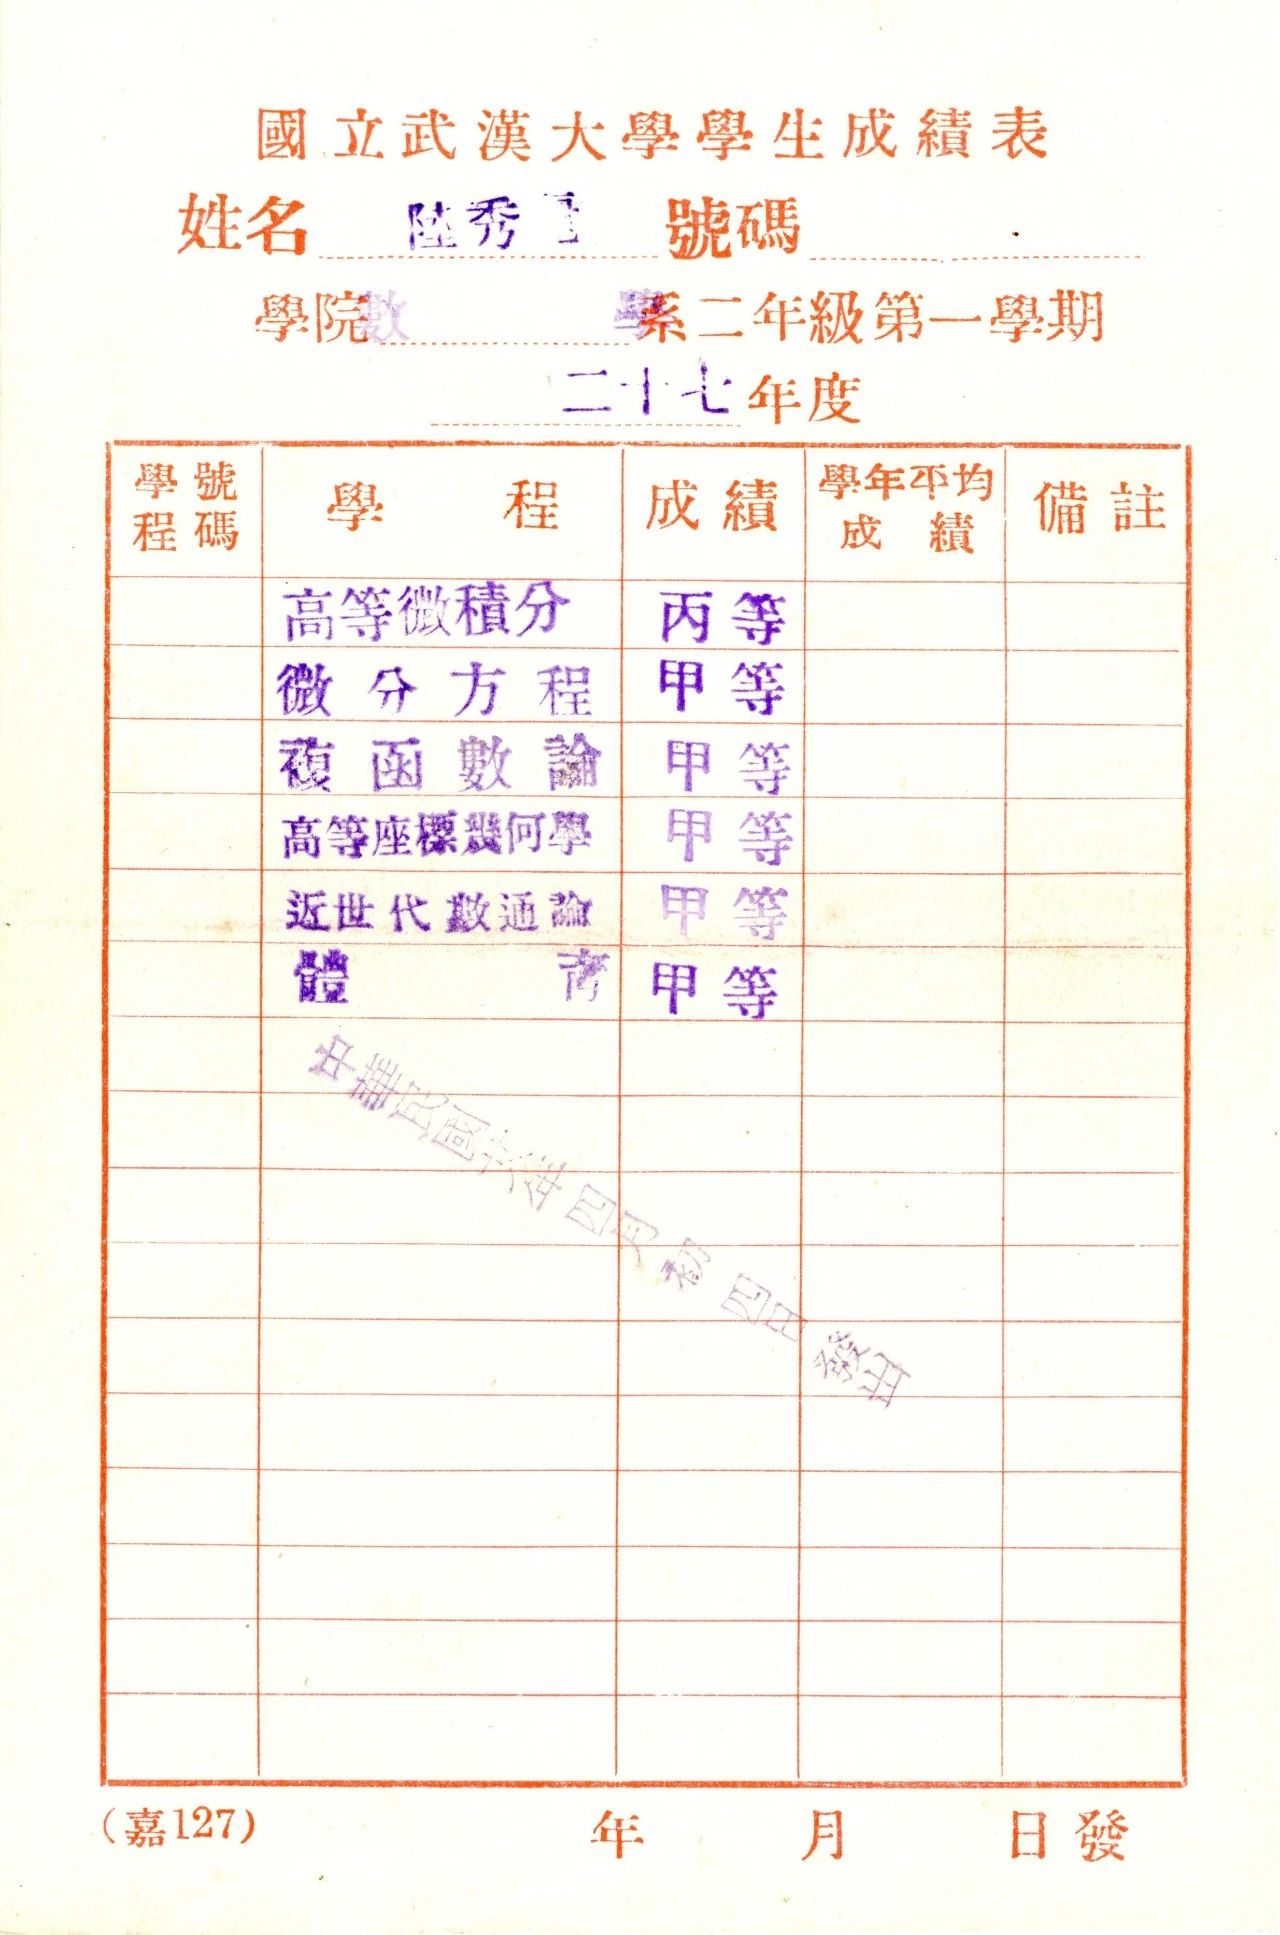 國立武漢大學學生成績表
姓名 陸秀 號碼
學院數 學系二年級第一學期
二十七年度
學程號碼 學程 成績 學年平均成績 備註
高等微積分 丙等
微分方程 甲等
複函數論 甲等
高等座標幾何學 甲等
近世代數通論 甲等
體育 甲等
中華民國廿八年四月初四日發出
(嘉127) 年 月 日發